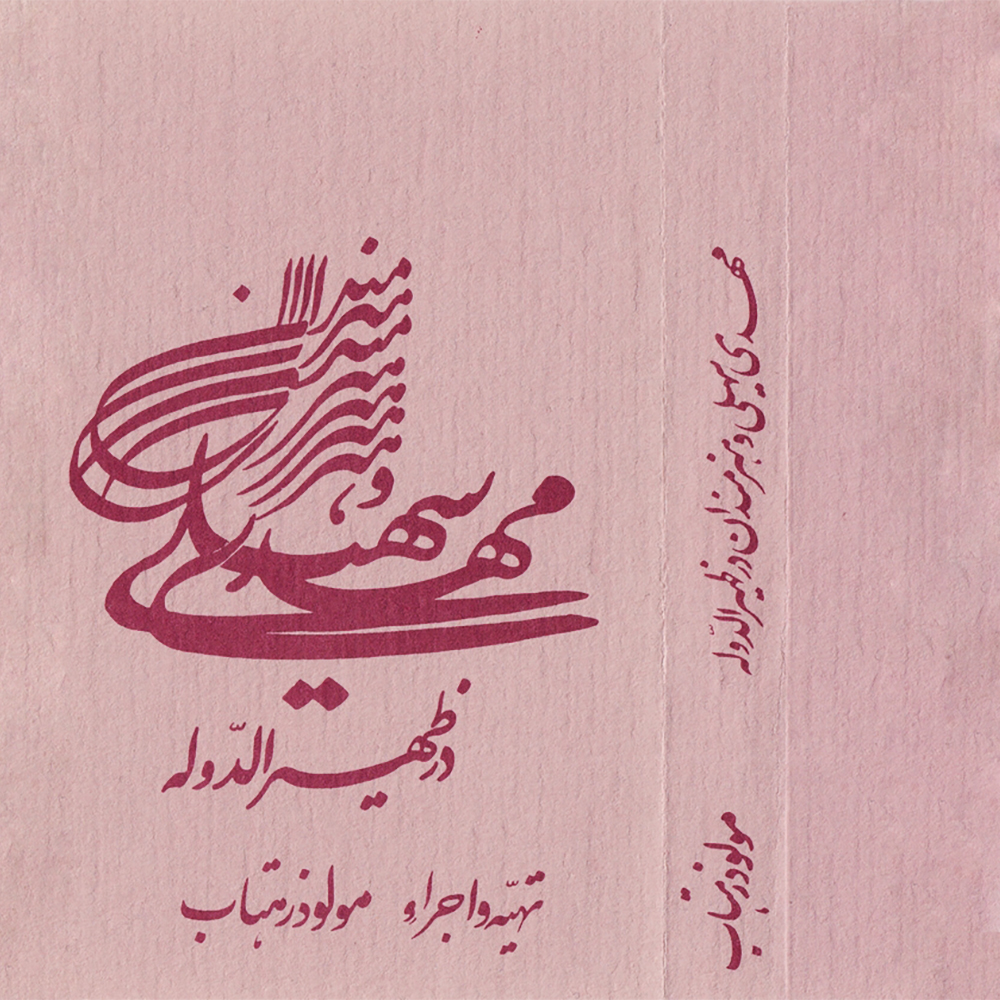 مهدی سهیلی
و هنرمندان
در ظهیرالدّوله
تهیّه و اجراء مولود زهتاب
مهدی سهیلی و هنرمندان در ظهیرالدّوله
مولود زهتاب